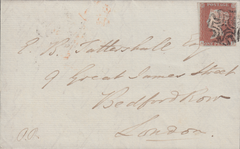 P. B. Tattershall Esq
9 Great James Street
Bedford Row
London.